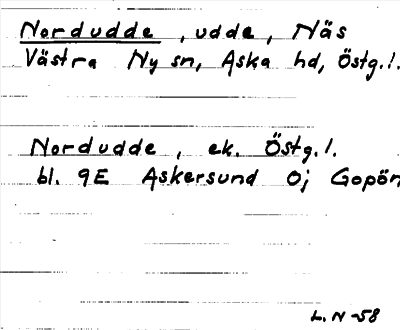 Nordudde, udde, Näs
Västra Ny sn, Aska hd, Östg.l.
Nordudde, ek. Östg.l.
bl. 9E Askersund 0j Gopön
L. N -58